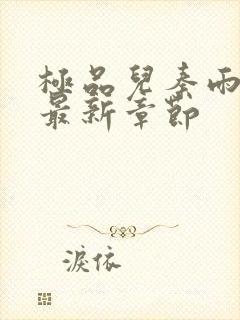 極品兒秦雨
最新章節
淚依